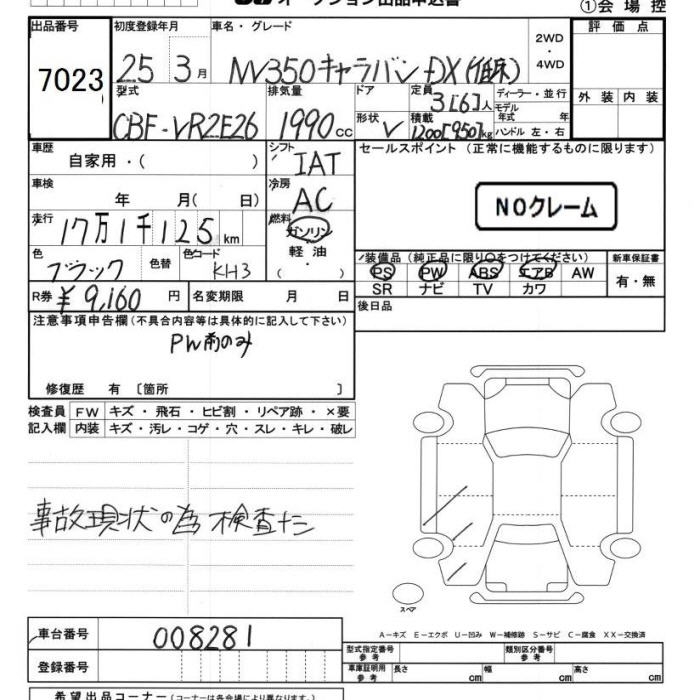 オークション出品申込書
①会場控
出品番号
7023
初度登録年月
25 3月
車名・グレード
NV350キャラバン DX(低床)
2WD
・
4WD
評価点
型式
CBF-VR2E26
排気量
1990cc
ドア
形状 V
定員 3[6]人
積載 1200[950]kg
ディーラー・並行
モデル
年式 年
ハンドル 左・右
外装 内装
車歴
自家用・( )
シフト
IAT
セールスポイント (正常に機能するものに限ります)
NOクレーム
車検
年 月( 日)
冷房
AC
走行
17万1千125km
燃料
ガソリン
軽油
( )
色
ブラック
色替
色コード
KH3
装備品(純正品に限り○をつけてください)
PS PW ABS エアB AW
SR ナビ TV カワ
新車保証書
有・無
R券 ¥9,160円
名変期限 月 日
後日品
注意事項申告欄(不具合内容等は具体的に記入して下さい)
PW前のみ
修復歴 有〔箇所 〕
検査員 FW キズ・飛石・ヒビ割・リペア跡・×要
記入欄 内装 キズ・汚レ・コゲ・穴・スレ・キレ・破レ
事故現状の為 検査ナシ
スペア
A−キズ E−エクボ U−凹み W−補修跡 S−サビ C−腐食 XX−交換済
車台番号 008281
登録番号
型式指定番号
参考
類別区分番号
参考
車庫証明用
参考
長さ cm 幅 cm 高さ cm
希望出品コーナー(コーナーは各会場により異なります)